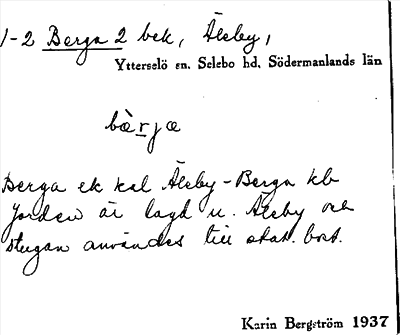 1-2 Berga 2 bek, Älsby,
Ytterselö sn. Selebo hd. Södermanlands län
bærjæ
Berga ek kal Älsby-Berga kb
Jorden är lagd u. Älsby och
stugan användes till stat. bost.
Karin Bergström 1937